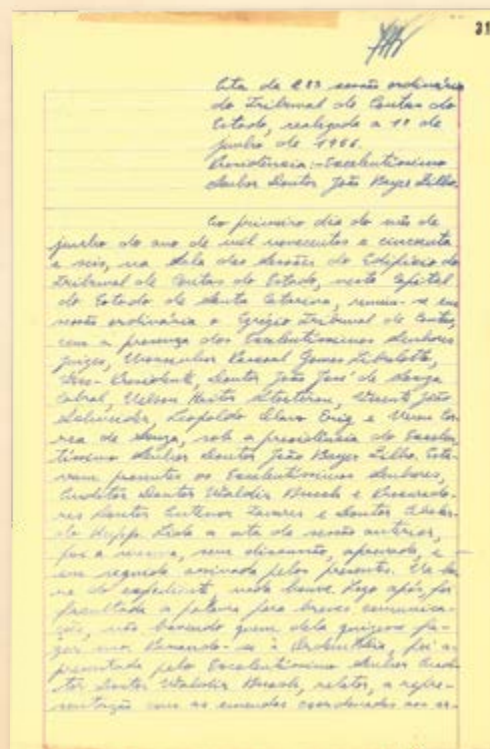 31
Ata da 283 sessão ordinária
do Tribunal de Contas do
Estado, realizada a 1º de
junho de 1956.
Presidência:-Excelentíssimo
Senhor Doutor João Bayer Filho.
Ao primeiro dia do mês de
junho do ano de mil novecentos e cincoenta
e seis, na Sala das Sessões do Edifício do
Tribunal de Contas do Estado, nesta Capital
do Estado de Santa Catarina, reuniu-se em
sessão ordinária o Egrégio Tribunal de Contas,
com a presença dos Excelentíssimos Senhores
Juizes, Monsenhor Pascoal Gomes Librelotto,
Vice-Presidente, Doutor João José de Souza
Cabral, Nelson Heitor Stoeterau, Vicente João
Schneider, Leopoldo Olavo Erig e Nereu Cor-
rea de Souza, sob a presidência do Excelen-
tíssimo Senhor Doutor João Bayer Filho. Esta-
vam presentes os Excelentíssimos Senhores,
Auditor Doutor Waldir Busch e Procurado-
res Doutor Antenor Tavares e Doutor
Hoepp. Lida a ata da sessão anterior,
foi a mesma, sem discussão, aprovada, e
em seguida assinada pelos presentes. Na ho-
ra do expediente, nada houve. Logo após, foi
facultada a palavra para breves comunica-
ções, não havendo quem dela quizesse fa-
zer uso. Passando-se à Ordem do dia, foi a-
presentada pelo Excelentíssimo Senhor Audi-
tor Doutor Waldir Busch, relator, a repre-
sentação com as emendas coordenadas aos ar-